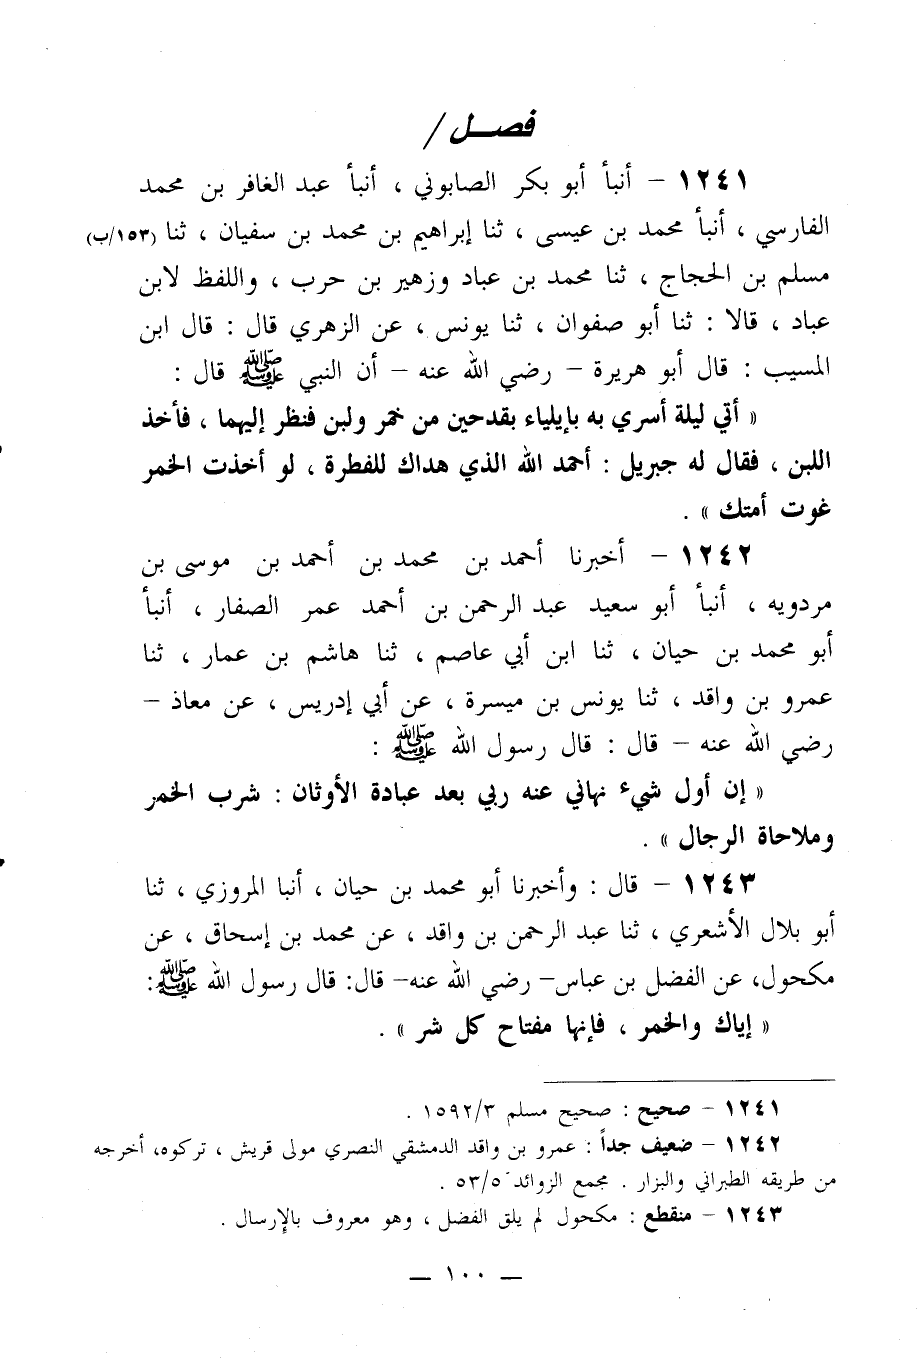 فصل /
١٢٤١ – أنبأ أبو بكر الصابوني ، أنبأ عبد الغافر بن محمد
الفارسي ، أنبأ محمد بن عيسى ، ثنا إبراهيم بن محمد بن سفيان ، ثنا (١٥٣/ب)
مسلم بن الحجاج ، ثنا محمد بن عباد وزهير بن حرب ، واللفظ لابن
عباد ، قالا : ثنا أبو صفوان ، ثنا يونس ، عن الزهري قال : قال ابن
المسيب : قال أبو هريرة – رضي الله عنه – أن النبي ﷺ قال :
« أتي ليلة أسري به بإيلياء بقدحين من خمر ولبن فنظر إليهما ، فأخذ
اللبن ، فقال له جبريل : أحمد الله الذي هداك للفطرة ، لو أخذت الخمر
غوت أمتك » .
١٢٤٢ – أخبرنا أحمد بن محمد بن أحمد بن موسى بن
مردويه ، أنبأ أبو سعيد عبد الرحمن بن أحمد عمر الصفار ، أنبأ
أبو محمد بن حيان ، ثنا ابن أبي عاصم ، ثنا هاشم بن عمار ، ثنا
عمرو بن واقد ، ثنا يونس بن ميسرة ، عن أبي إدريس ، عن معاذ –
رضي الله عنه – قال : قال رسول الله ﷺ :
« إن أول شيء نهاني عنه ربي بعد عبادة الأوثان : شرب الخمر
وملاحاة الرجال » .
١٢٤٣ – قال : وأخبرنا أبو محمد بن حيان ، أنبا المروزي ، ثنا
أبو بلال الأشعري ، ثنا عبد الرحمن بن واقد ، عن محمد بن إسحاق ، عن
مكحول، عن الفضل بن عباس– رضي الله عنه– قال: قال رسول الله ﷺ:
« إياك والخمر ، فإنها مفتاح كل شر » .
١٢٤١ – صحيح : صحيح مسلم ١٥٩٢/٣ .
١٢٤٢ – ضعيف جداً : عمرو بن واقد الدمشقي النصري مولى قريش ، تركوه، أخرجه
من طريقه الطبراني والبزار . مجمع الزوائد ٥٣/٥ .
١٢٤٣ – منقطع : مكحول لم يلق الفضل ، وهو معروف بالإرسال .
— ١٠٠ —